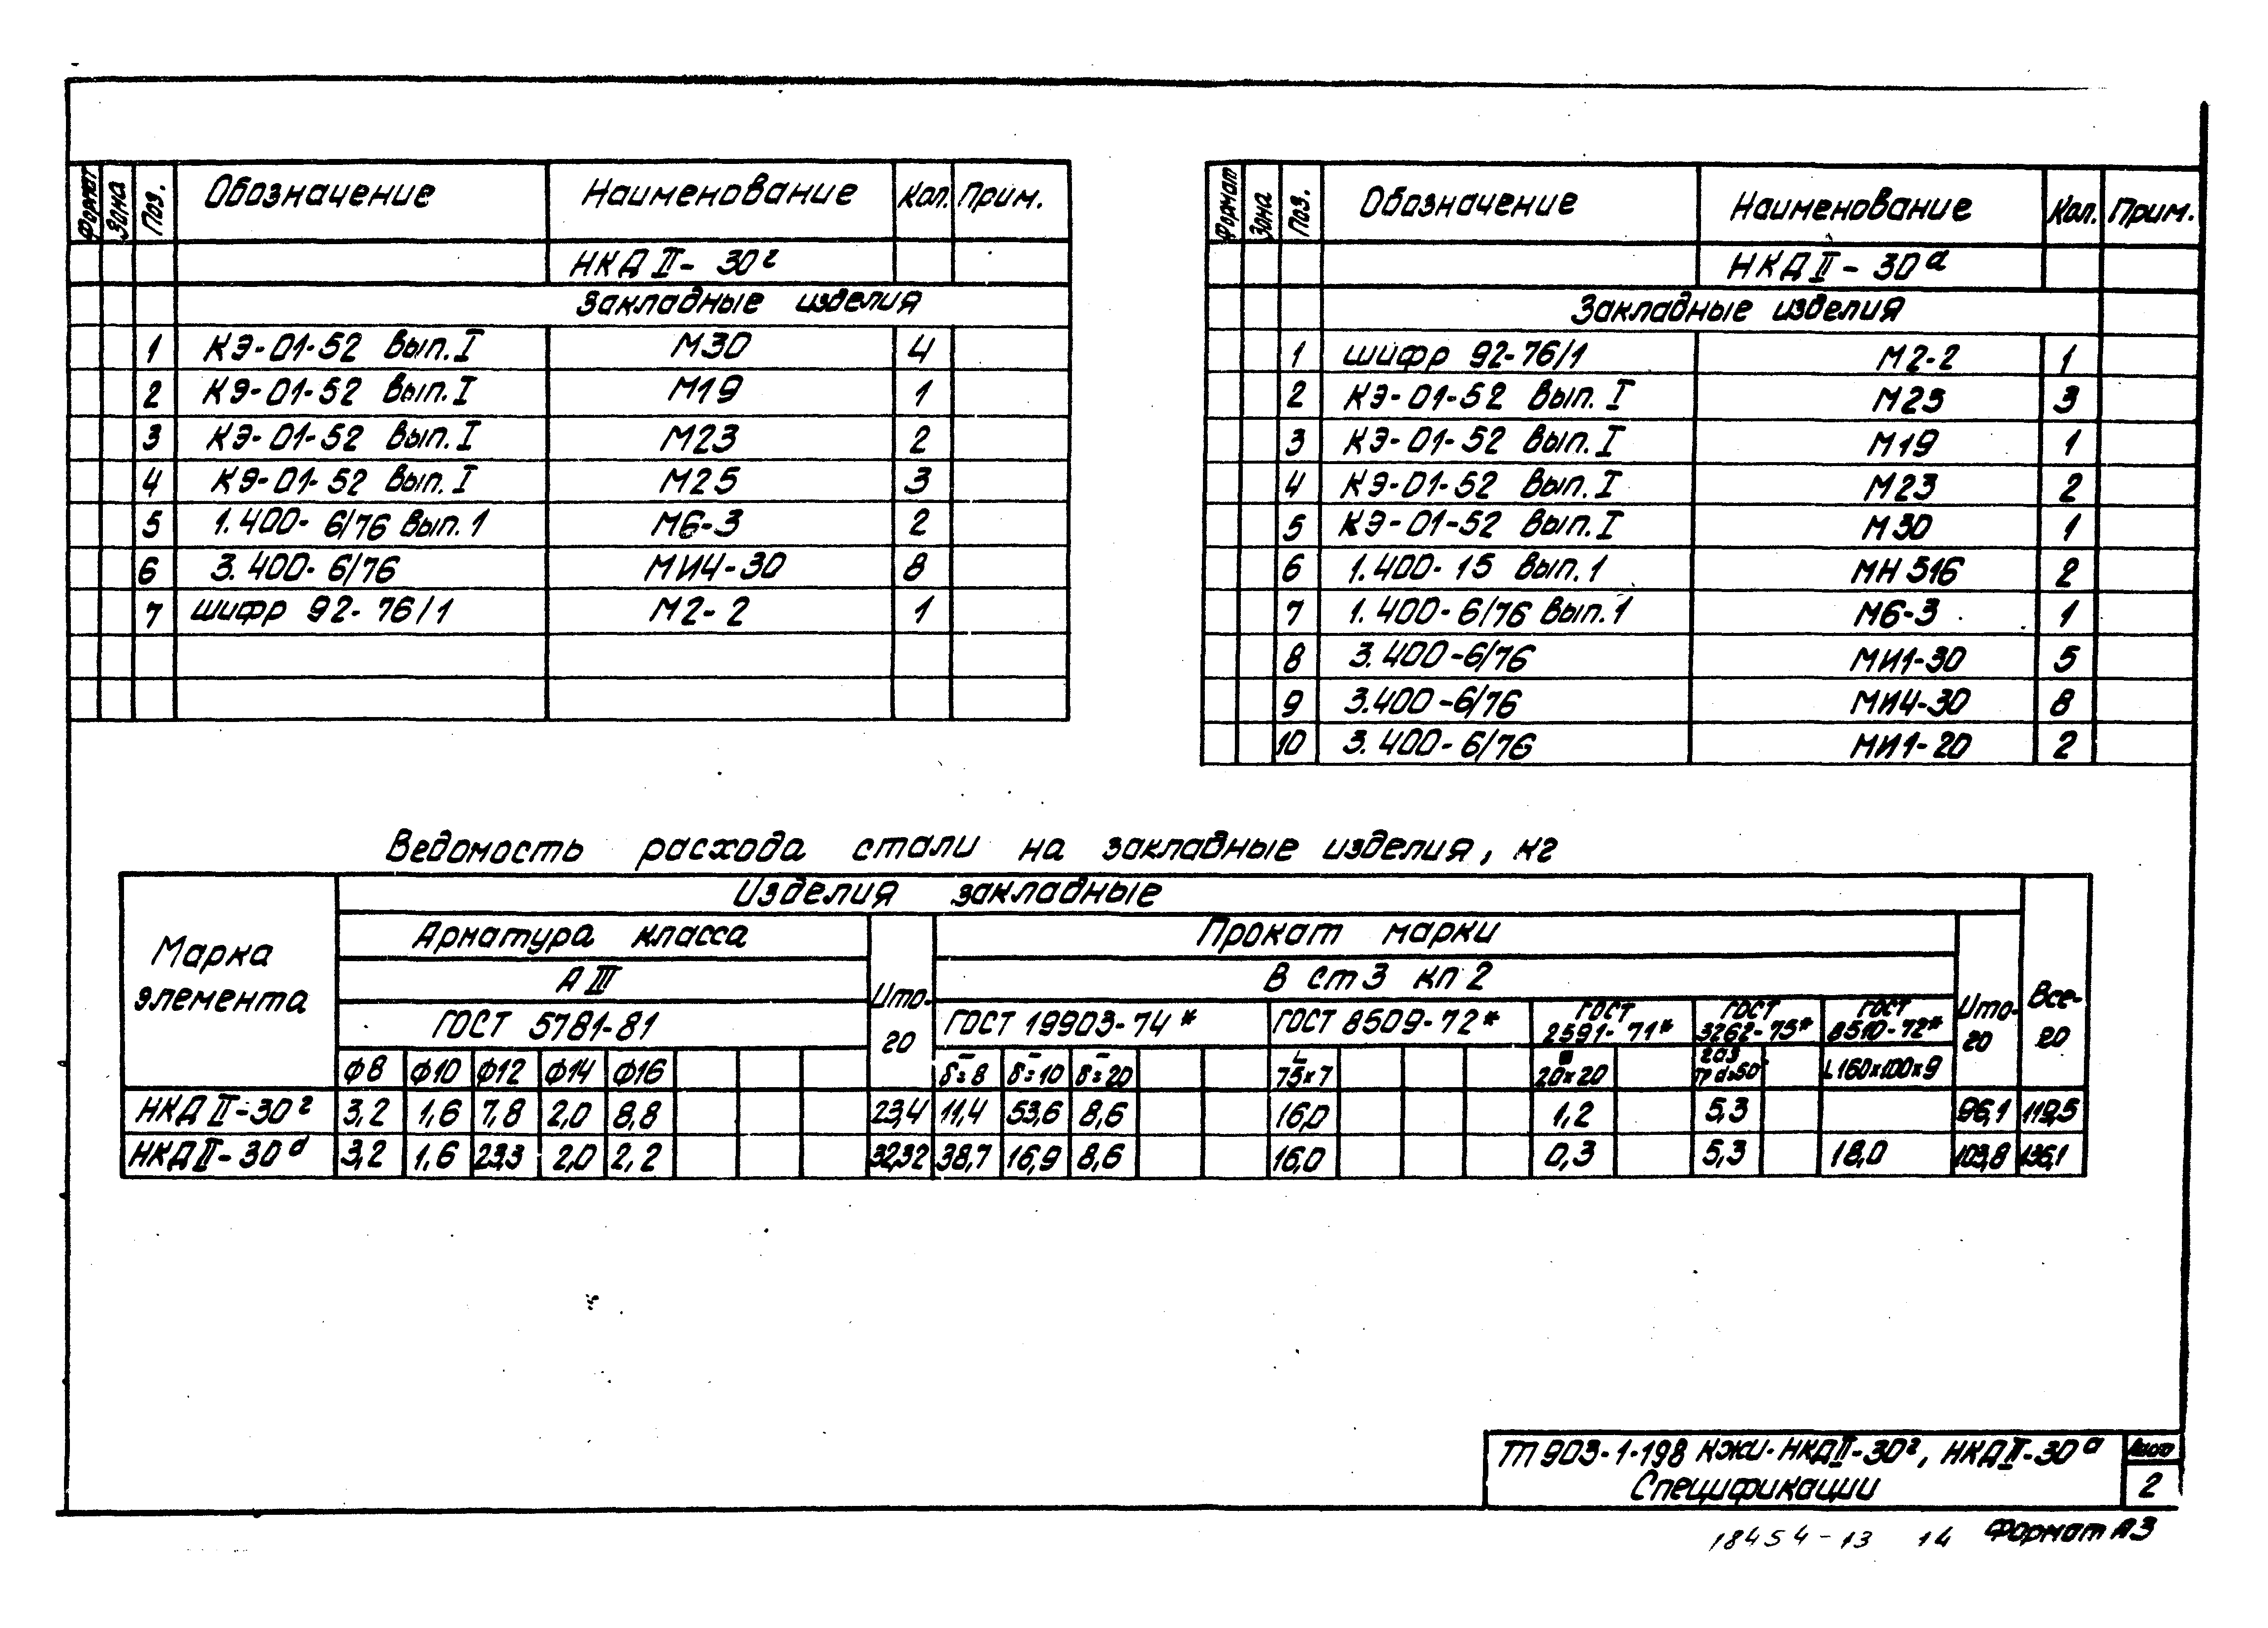 Формат Зона Поз. Обозначение Наименование Кол. Прим.
НКДII-30г
Закладные изделия
1 КЭ-01-52 Вып.I М30 4
2 КЭ-01-52 Вып.I М19 1
3 КЭ-01-52 Вып.I М23 2
4 КЭ-01-52 Вып.I М25 3
5 1.400-6/76 Вып.1 М6-3 2
6 3.400-6/76 МИ4-30 8
7 шифр 92-76/1 М2-2 1
Формат Зона Поз. Обозначение Наименование Кол. Прим.
НКДII-30д
Закладные изделия
1 шифр 92-76/1 М2-2 1
2 КЭ-01-52 Вып.I М25 3
3 КЭ-01-52 Вып.I М19 1
4 КЭ-01-52 Вып.I М23 2
5 КЭ-01-52 Вып.I М30 1
6 1.400-15 Вып.1 МН 516 2
7 1.400-6/76 Вып.1 М6-3 1
8 3.400-6/76 МИ1-30 5
9 3.400-6/76 МИ4-30 8
10 3.400-6/76 МИ1-20 2
Ведомость расхода стали на закладные изделия, кг
Марка элемента
Изделия закладные
Всего
Арматура класса
Итого
Прокат марки
Итого
А III
В ст3 кп2
ГОСТ 5781-81
ГОСТ 19903-74*
ГОСТ 8509-72*
ГОСТ 2591-71*
ГОСТ 3262-75*
ГОСТ 8510-72*
ф8 ф10 ф12 ф14 ф16 δ=8 δ=10 δ=20 L 75×7 ■ 20×20 газ тр d=50 L160×100×9
НКДII-30г 3,2 1,6 7,8 2,0 8,8 23,4 11,4 53,6 8,6 16,0 1,2 5,3 96,1 119,5
НКДII-30д 3,2 1,6 23,3 2,0 2,2 32,32 38,7 16,9 8,6 16,0 0,3 5,3 18,0 103,8 136,1
ТП 903-1-198 КЖИ-НКДII-30г, НКДII-30д
Спецификации
Лист
2
18454-13 14 Формат А3